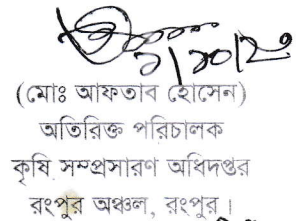 ৯/১০/২৩
(মোঃ আফতাব হোসেন)
অতিরিক্ত পরিচালক
কৃষি সম্প্রসারণ অধিদপ্তর
রংপুর অঞ্চল, রংপুর।